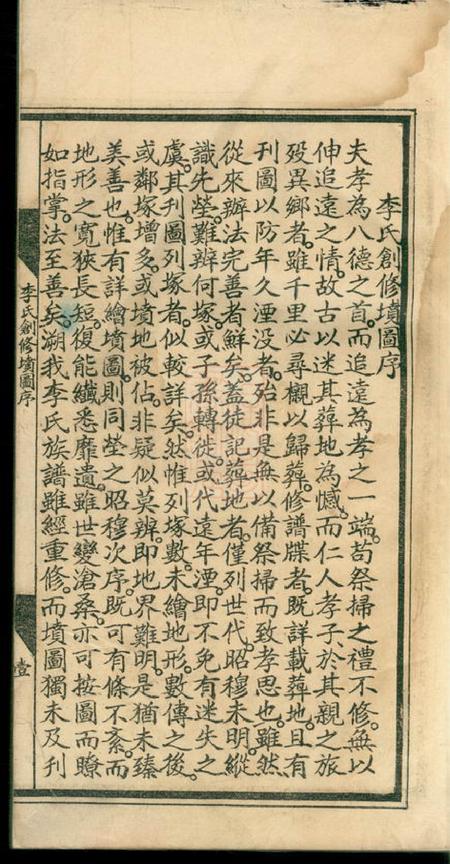 李氏創修墳圖序
夫孝為八德之首而追遠為孝之一端苟祭掃之禮不修無以
伸追遠之情故古以迷其葬地為憾而仁人孝子於其親之旅
歿異鄉者雖千里必尋櫬以歸葬修譜牒者既詳載葬地且有
刊圖以防年久湮没者殆非是無以備祭掃而致孝思也雖然
從來辦法完善者鮮矣蓋徒記葬地者僅列世代昭穆未明縱
識先塋難辨何塚或子孫轉徙或代遠年湮即不免有迷失之
虞其刊圖列塚者似較詳矣然惟列塚數未繪地形數傳之後
或鄰塚增多或墳地被佔非疑似莫辨即地界難明是猶未臻
美善也惟有詳繪墳圖則同塋之昭穆次序既可有條不紊而
地形之寬狹長短復能纖悉靡遺雖世變滄桑亦可按圖而瞭
如指掌法至善矣溯我李氏族譜雖經重修而墳圖獨未及刊
李氏創修墳圖序
壹